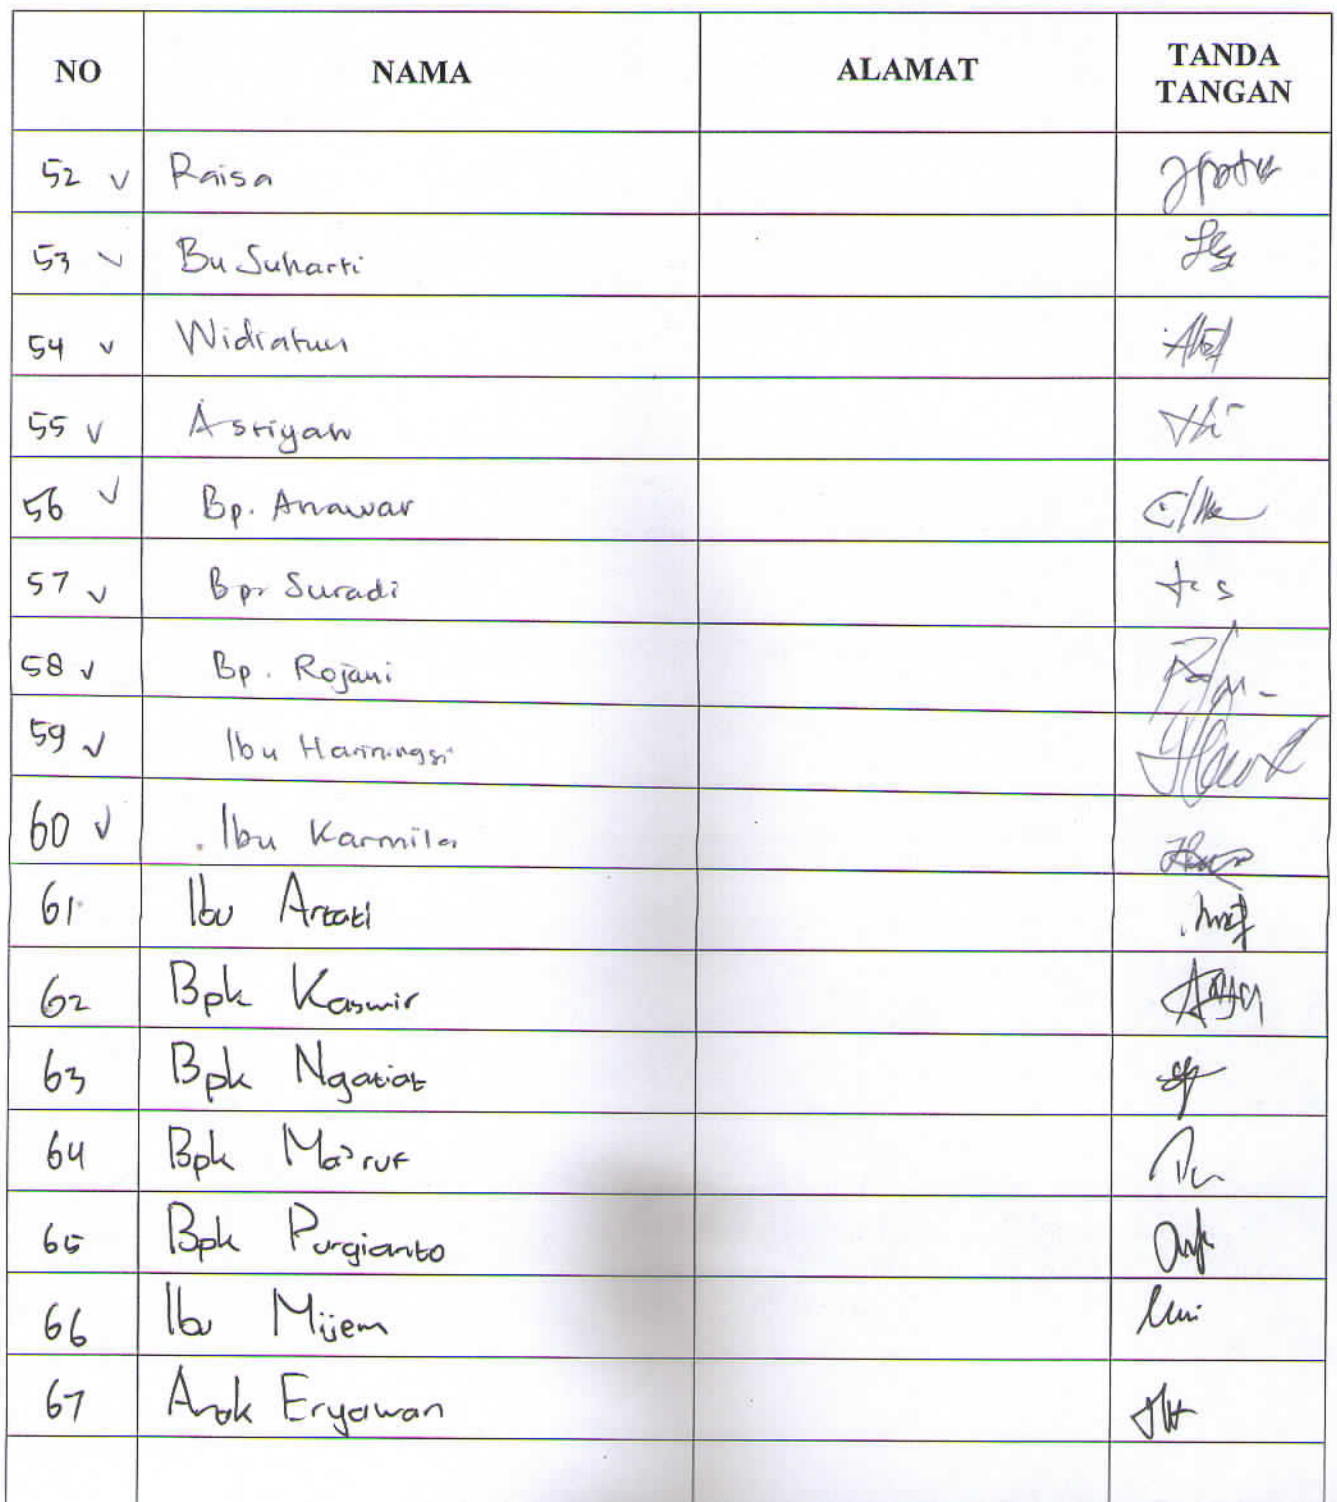 NO NAMA ALAMAT TANDA TANGAN
52 v Raisa
53 v Bu Suharti
54 v Widiatun
55 v Astiyah
56 v Bp. Anawar
57 v Bp. Suradi
58 v Bp. Rojani
59 v Ibu Harningsi
60 v Ibu Karmila
61 Ibu Artati
62 Bpk Kasmir
63 Bpk Ngatiat
64 Bpk Ma'ruf
65 Bpk Purgianto
66 Ibu Mijem
67 Anak Eryawan